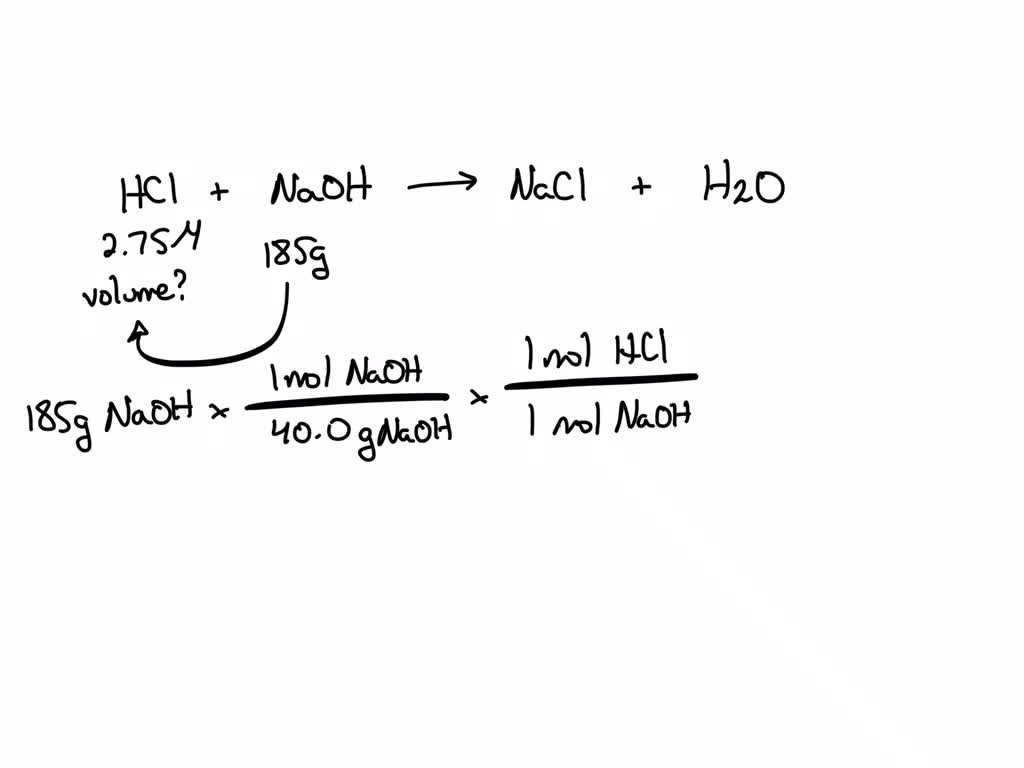 HCl + NaOH → NaCl + H2O
2.75M 185g
volume?
185g NaOH × 1 mol NaOH / 40.0 g NaOH × 1 mol HCl / 1 mol NaOH